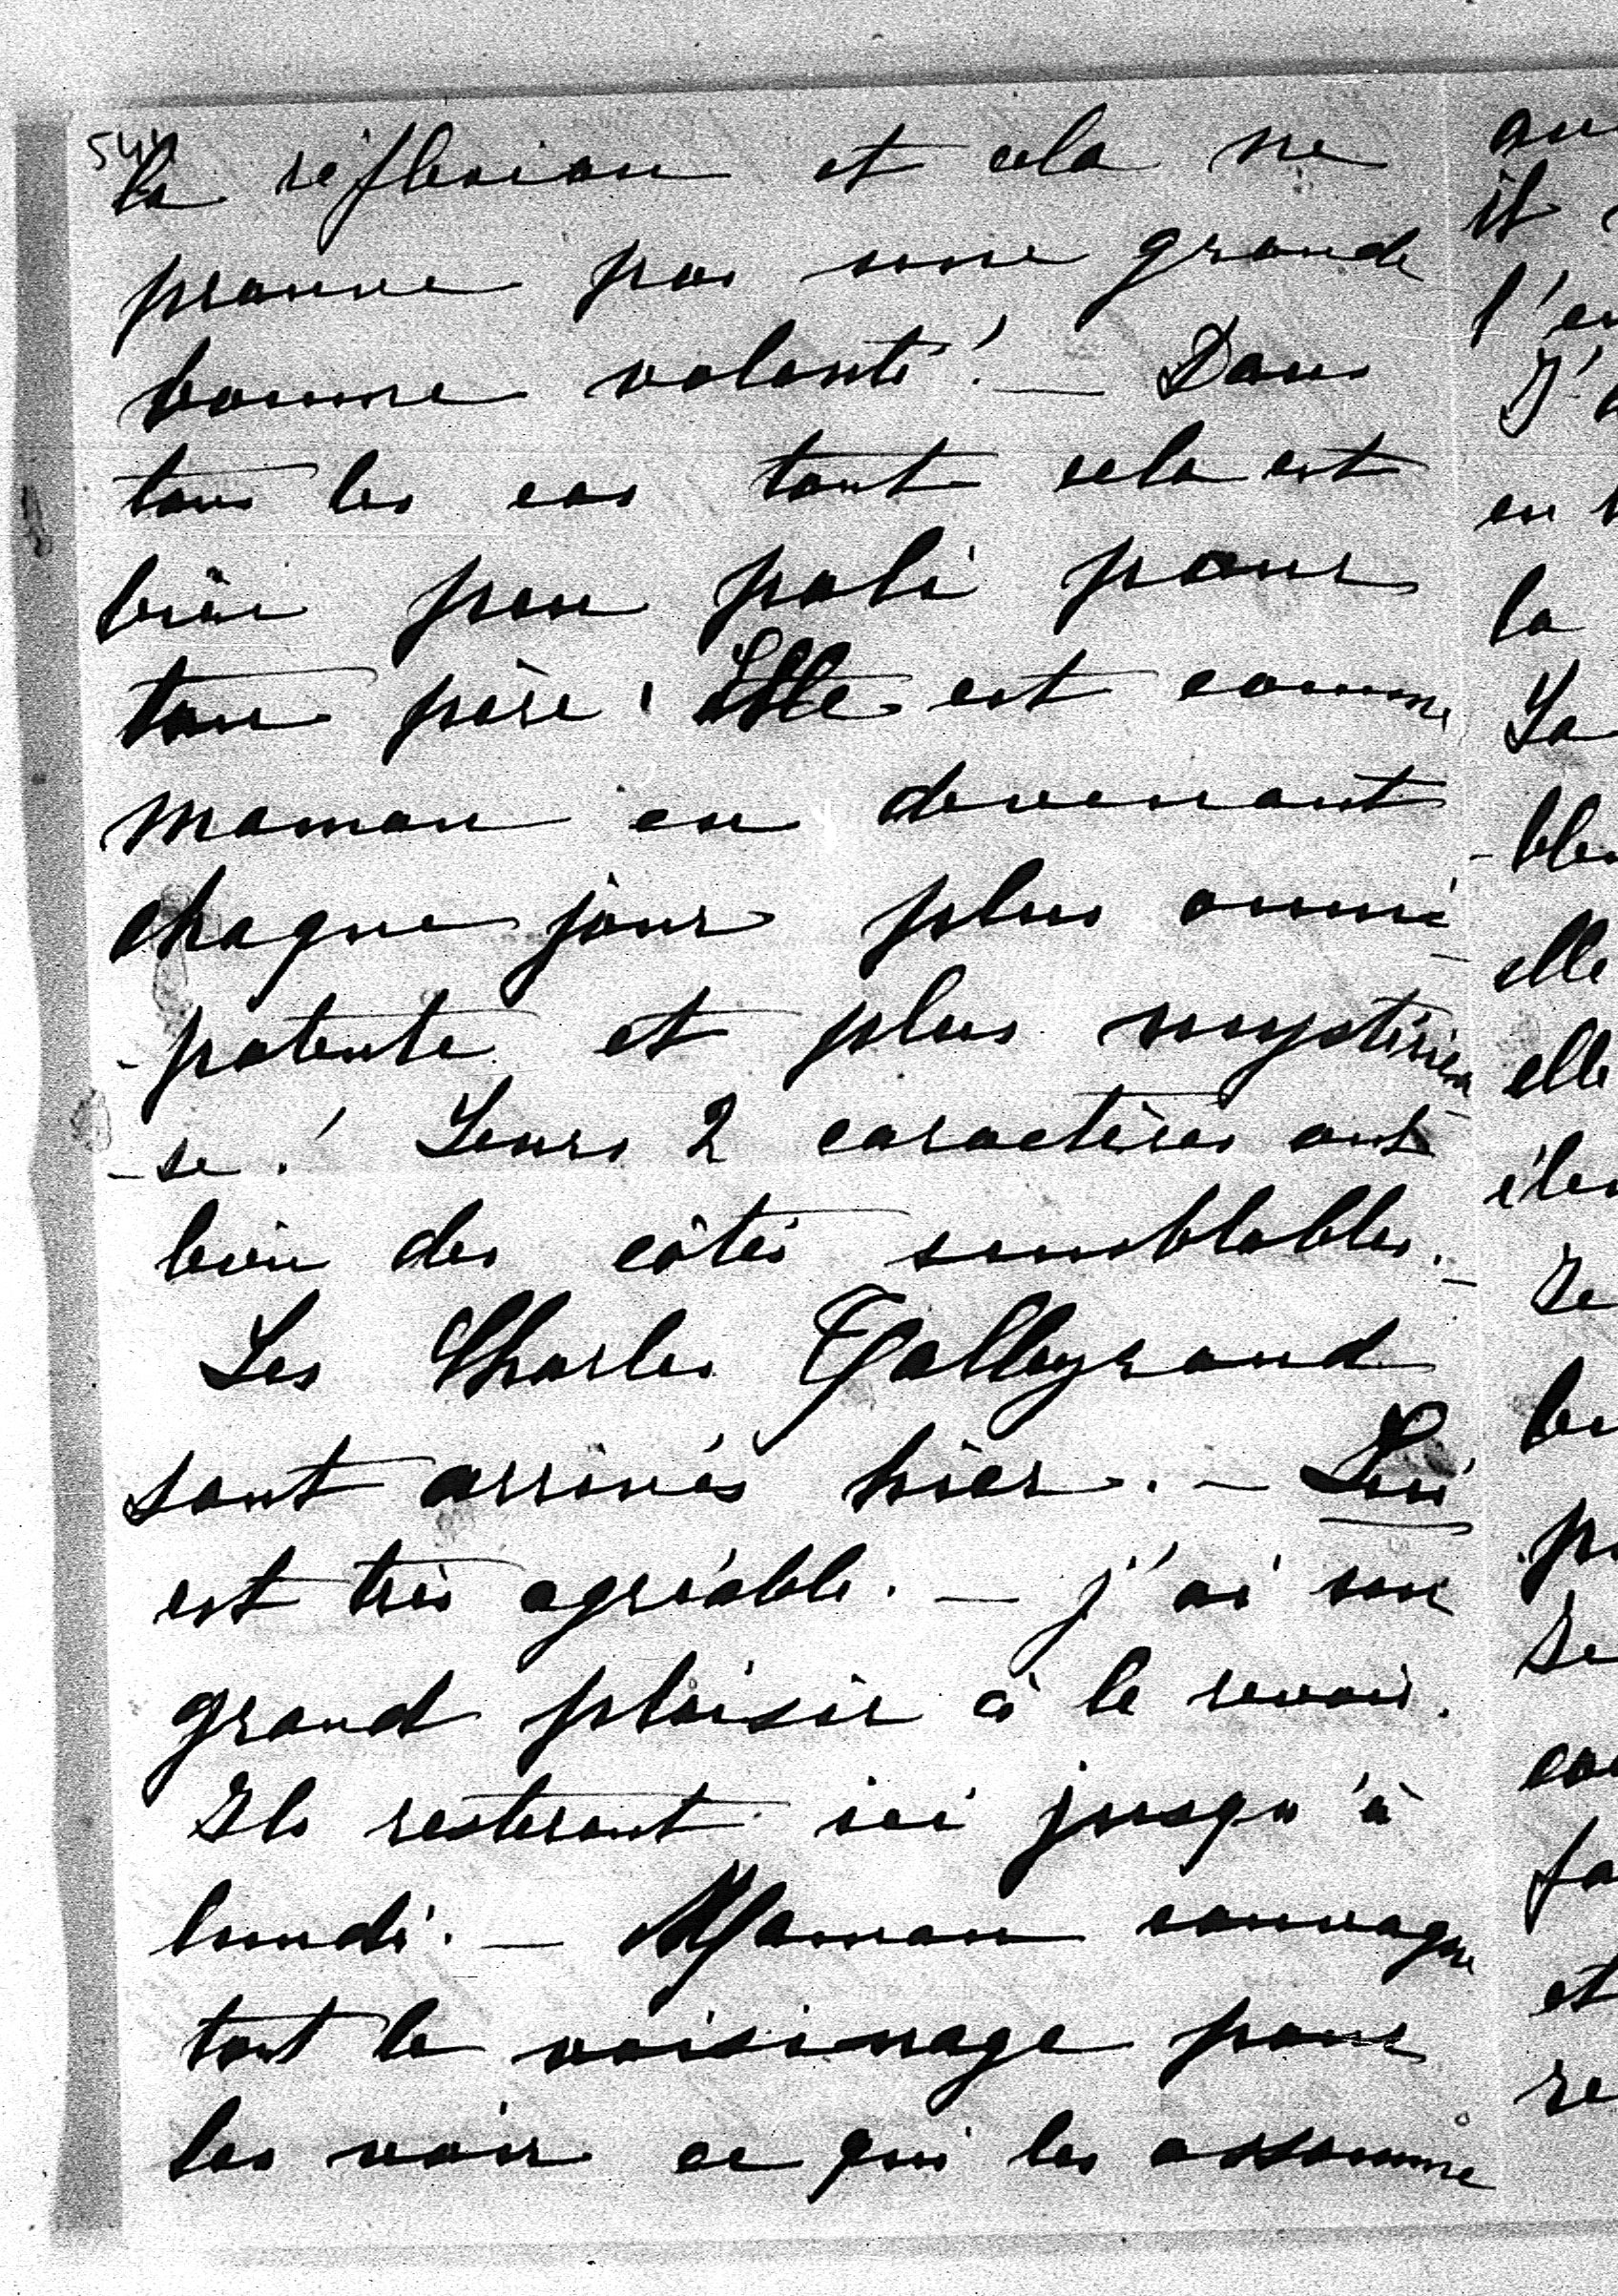 544
la réflexion et cela ne
prouve pas une grande
bonne volonté! — Dans
tous les cas tout cela est
bien peu poli pour
ton père. Elle est comme
maman en devenant
chaque jour plus omni-
-potente et plus mystérieu
-se! Leurs 2 caractères ont
bien des côtés semblables. —
Les Charles Talleyrand
sont arrivés hier. — Lui
est très agréable. — j'ai un
grand plaisir à le revoir.
Ils resteront ici jusqu'à
lundi. — Maman convoque
tout le voisinage pour
les voir ce qui les assomme
il
l'en
J'
en
la
La
-ble
elle
elle
Je
et